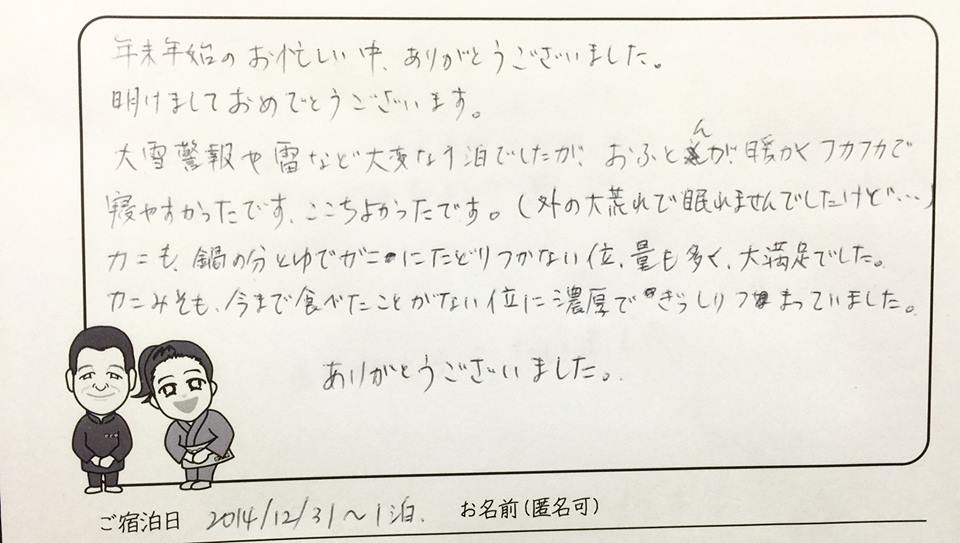 年末年始のお忙しい中、ありがとうございました。
明けましておめでとうございます。
大雪警報や雷など大変な1泊でしたが、おふとんが暖かくフカフカで
寝やすかったです、ここちよかったです。(外の大荒れで眠れませんでしたけど…)
カニも、鍋の分とゆでガニにたどりつかない位、量も多く、大満足でした。
カニみそも、今まで食べたことがない位に濃厚でぎっしりつまっていました。
ありがとうございました。
ご宿泊日 2014/12/31〜1泊. お名前(匿名可)